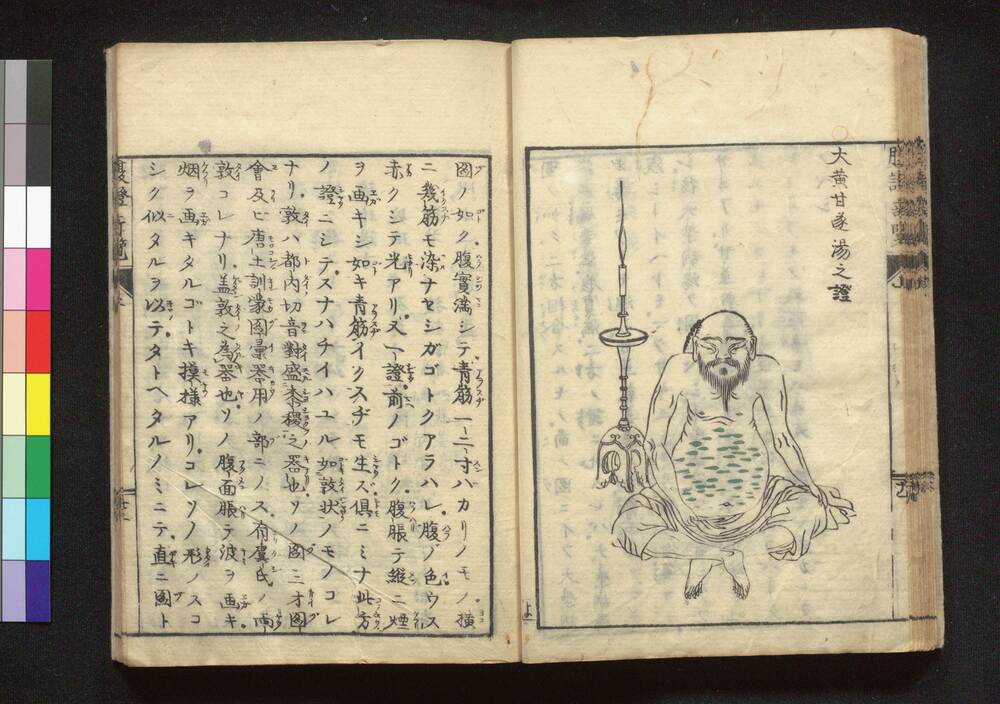 大黄甘遂湯之證
圖ノ如ク腹實滿シテ青筋一二寸バカリノモノ横
ニ幾筋モ染ナセシガゴトクアラハレ腹ノ色ウス
赤クシテ光アリ又一證前ノゴトク腹脹テ縱ニ煙
ヲ画キシ如キ青筋イクスヂモ生ス俱ニミナ此方
ノ證ニシテスナハチイハユル如敦状ノモノコレ
ナリ敦ハ都内切音對盛黍稷之器也ソノ圖三才圖
會及ヒ唐土訓蒙圖彙器用ノ部ニノス有虞氏ノ兩
敦コレナリ蓋敦之為器也ソノ腹面脹テ波ヲ画キ
烟ヲ画キタルゴトキ摸様アリコレソノ形ノスコ
シク似タルヲ以テタトヘタルノミニテ直ニ圖ト